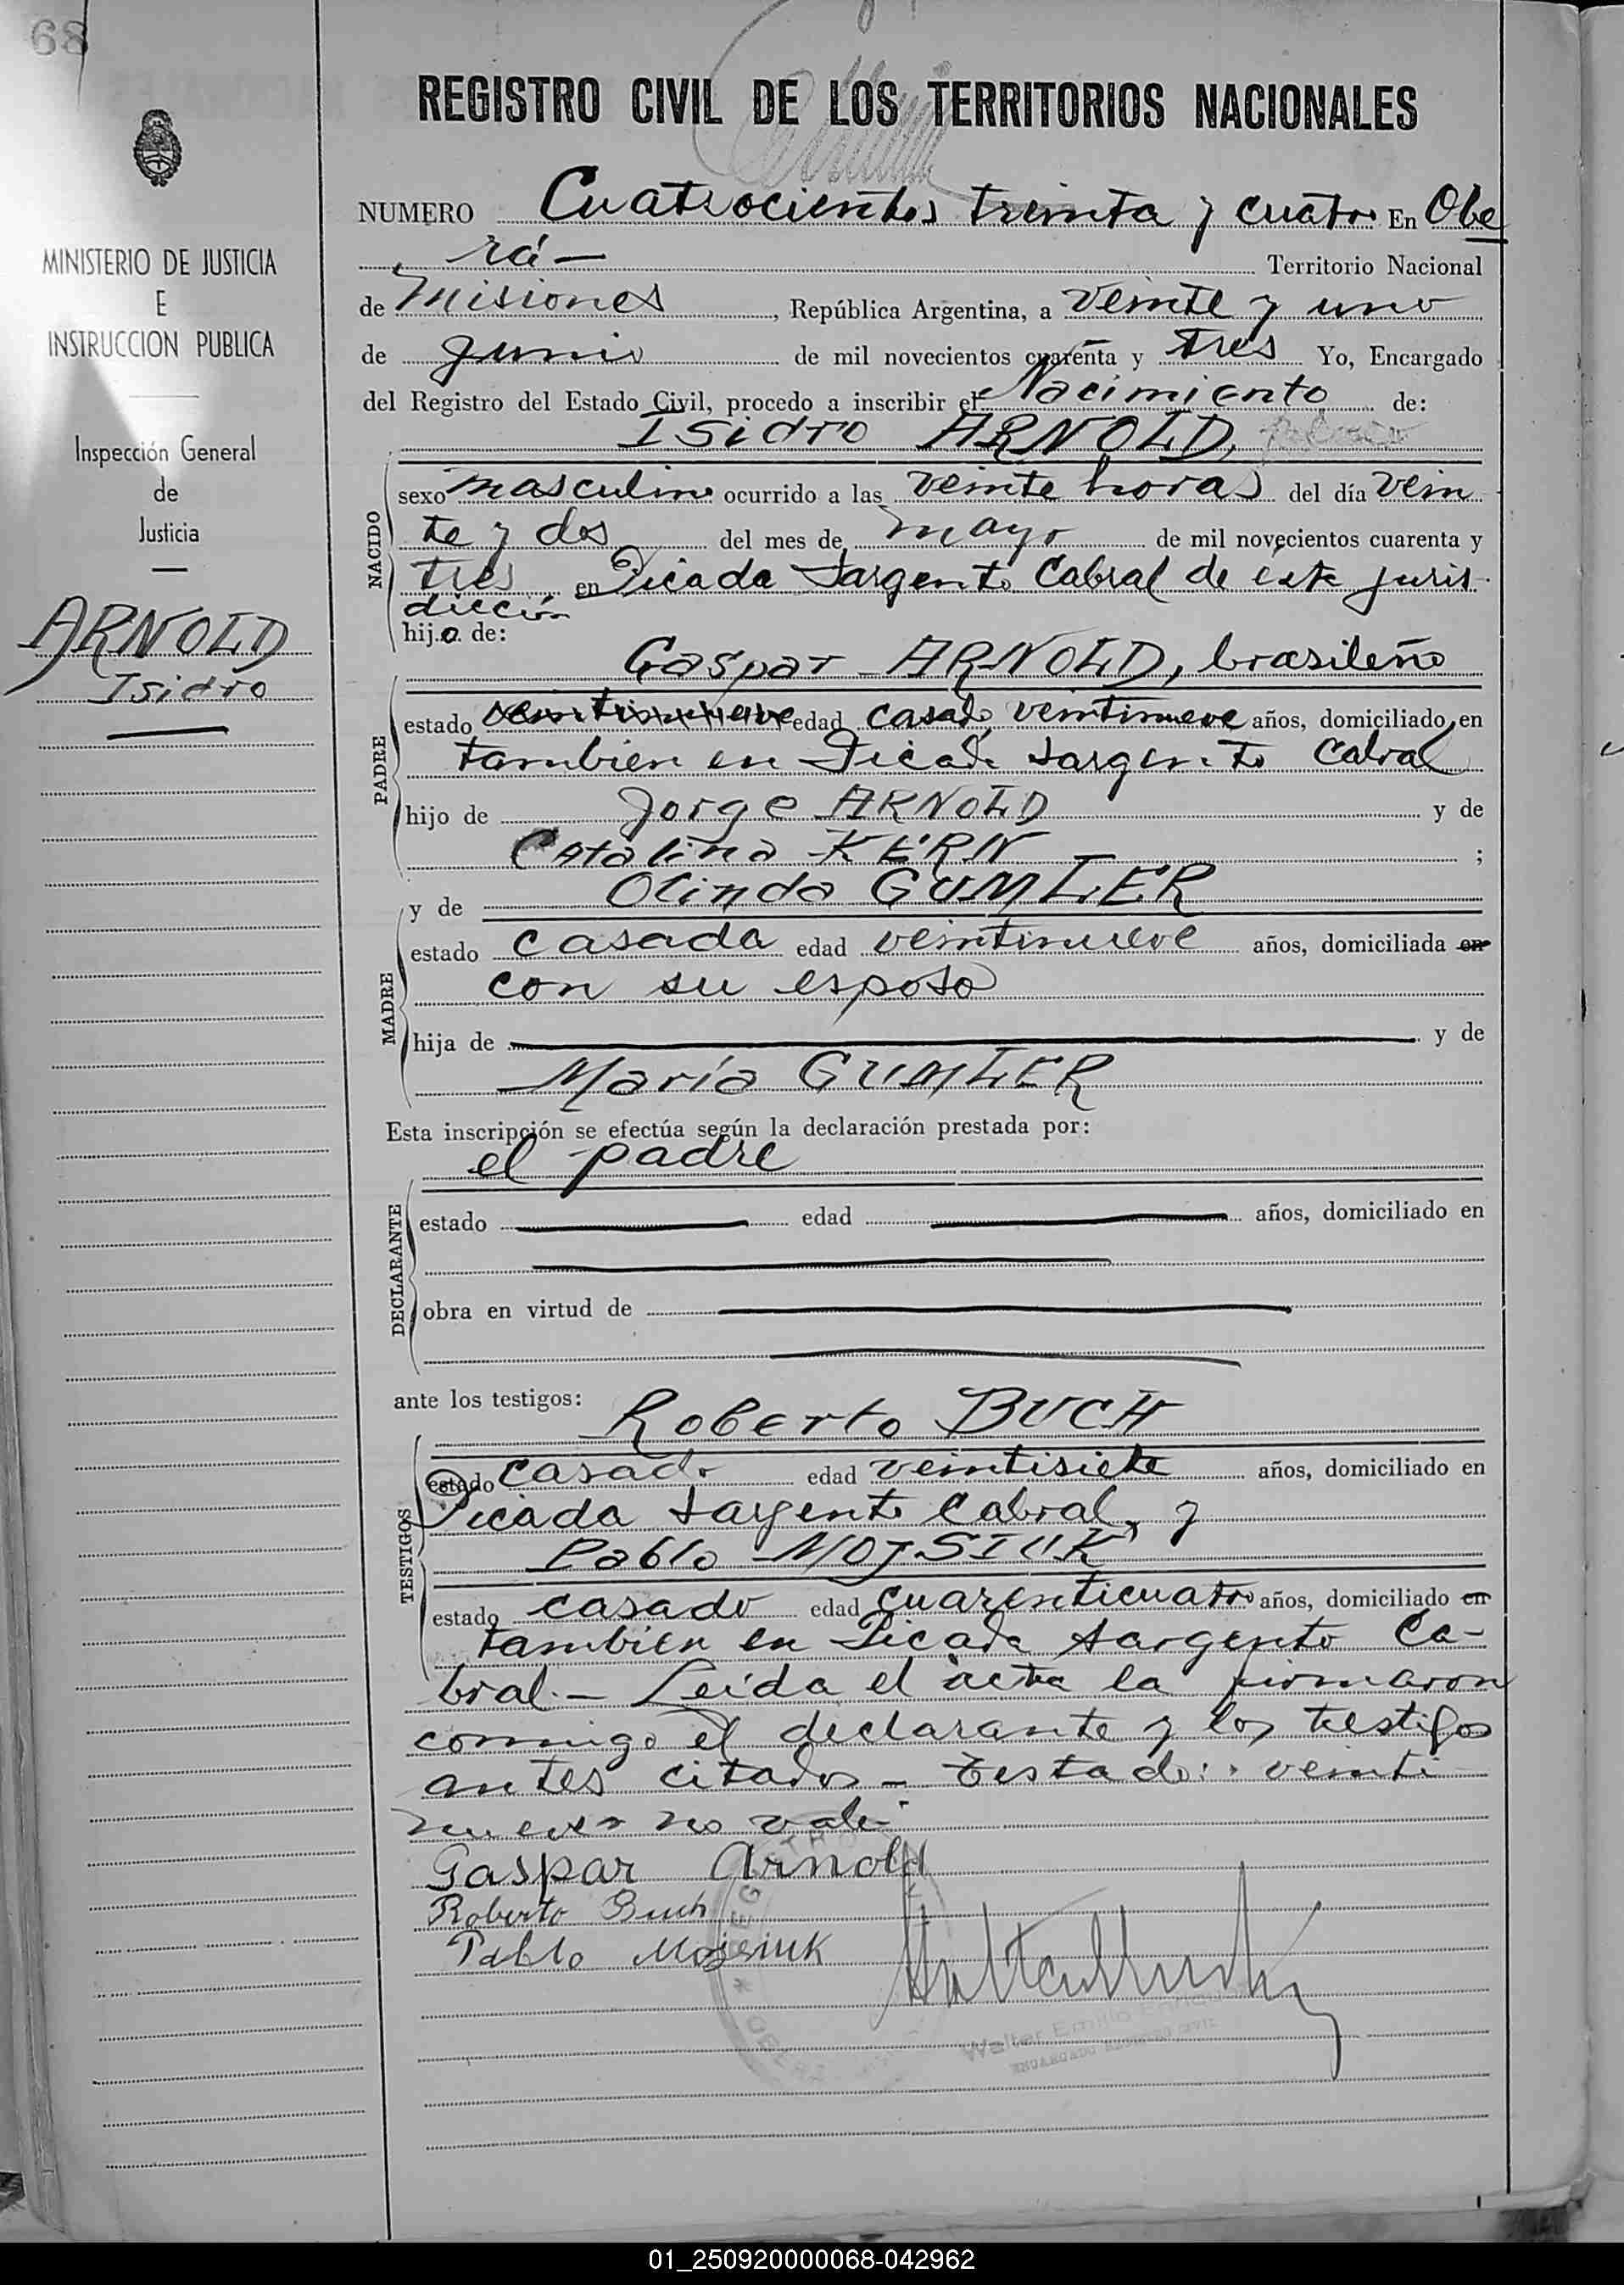 68
REGISTRO CIVIL DE LOS TERRITORIOS NACIONALES
MINISTERIO DE JUSTICIA
E
INSTRUCCION PUBLICA
Inspección General
de
Justicia
ARNOLD
Isidro
NUMERO Cuatrocientos treinta y cuatro En Obe
rá - Territorio Nacional
de Misiones, República Argentina, a veinte y uno
de Junio de mil novecientos cuarenta y tres Yo, Encargado
del Registro del Estado Civil, procedo a inscribir el Nacimiento de:
Isidro ARNOLD,
NACIDO
sexo masculino ocurrido a las veinte horas del día vein
te y dos del mes de mayo de mil novecientos cuarenta y
tres en Picada Sargento Cabral de esta juris-
dicción
hijo de:
Gaspar ARNOLD, brasileño
PADRE
estado veintinueve edad casado, veintinueve años, domiciliado en
tambien en Picada Sargento Cabral
hijo de Jorge ARNOLD y de
Catalina KERN ;
y de Olinda GUMLER
MADRE
estado casada edad veintinueve años, domiciliada en
con su esposo
hija de y de
María GUMLER
Esta inscripción se efectúa según la declaración prestada por:
el padre
DECLARANTE
estado edad años, domiciliado en
obra en virtud de
ante los testigos: Roberto BUCH
TESTIGOS
estado casado edad veintisiete años, domiciliado en
Picada Sargento Cabral, y
Pablo MOJSIUK
estado casado edad cuarenticuatro años, domiciliado en
tambien en Picada Sargento Ca-
bral.- Leída el acta la firmaron
conmigo el declarante y los testigos
antes citados - Testado: veinti
nueve no vale
Gaspar Arnold
Roberto Buch
Pablo Mojsiuk
Walter Emilio
ENCARGADO REGISTRO CIVIL
01_250920000068-042962